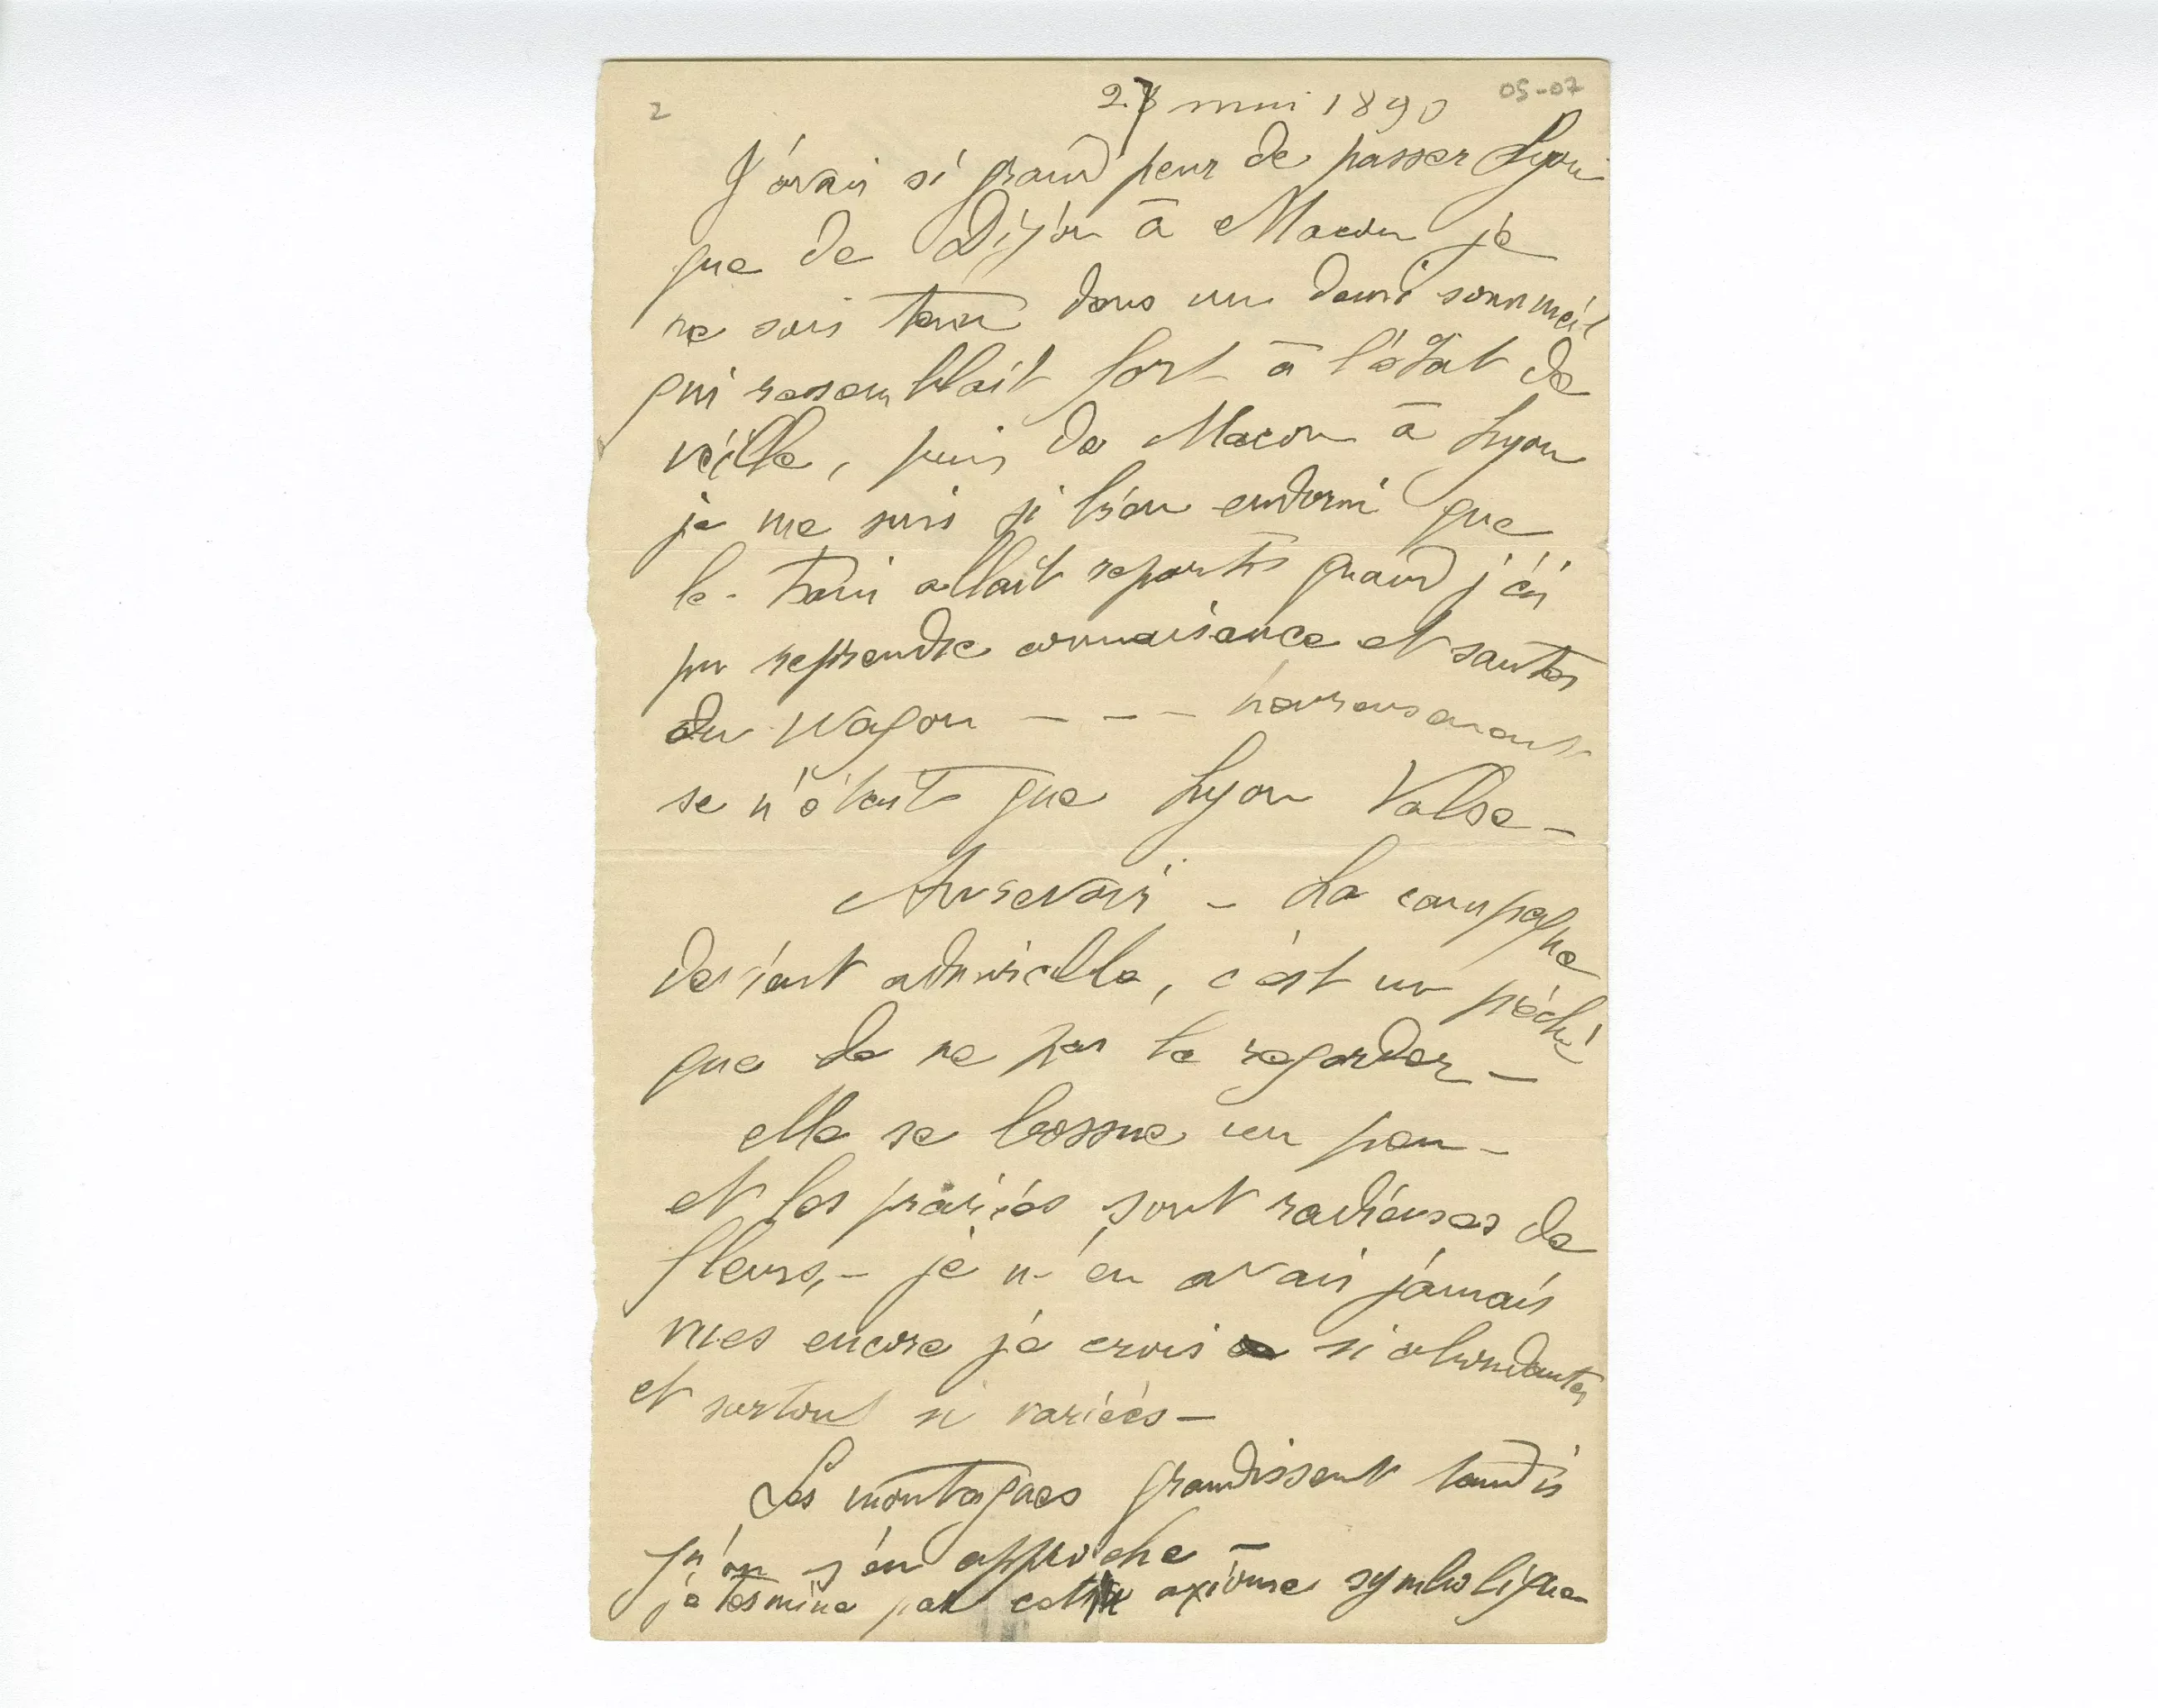 2
05-07
27 mai 1890
J'avais si grand peur de passer Lyon
que de Dijon à Macon je
me suis tenu dans un demi sommeil
qui ressemblait fort à l'état de
veille, puis de Macon à Lyon
je me suis si bien endormi que
le train allait repartir quand j'ai
pu reprendre connaissance et sauter
du wagon - - - heureusement
se n'était que Lyon Valse -
Aurevoir - La campagne
devient admirable, c'est un péché
que de ne pas la regarder -
elle se bossue un peu -
et les prairies sont radieuses de
fleurs, - je n'en avais jamais
vues encore je crois si abondantes
et surtout si variées -
Les montagnes grandissent tandis
qu'on s'en approche -
je termine par cet axiome symbolique